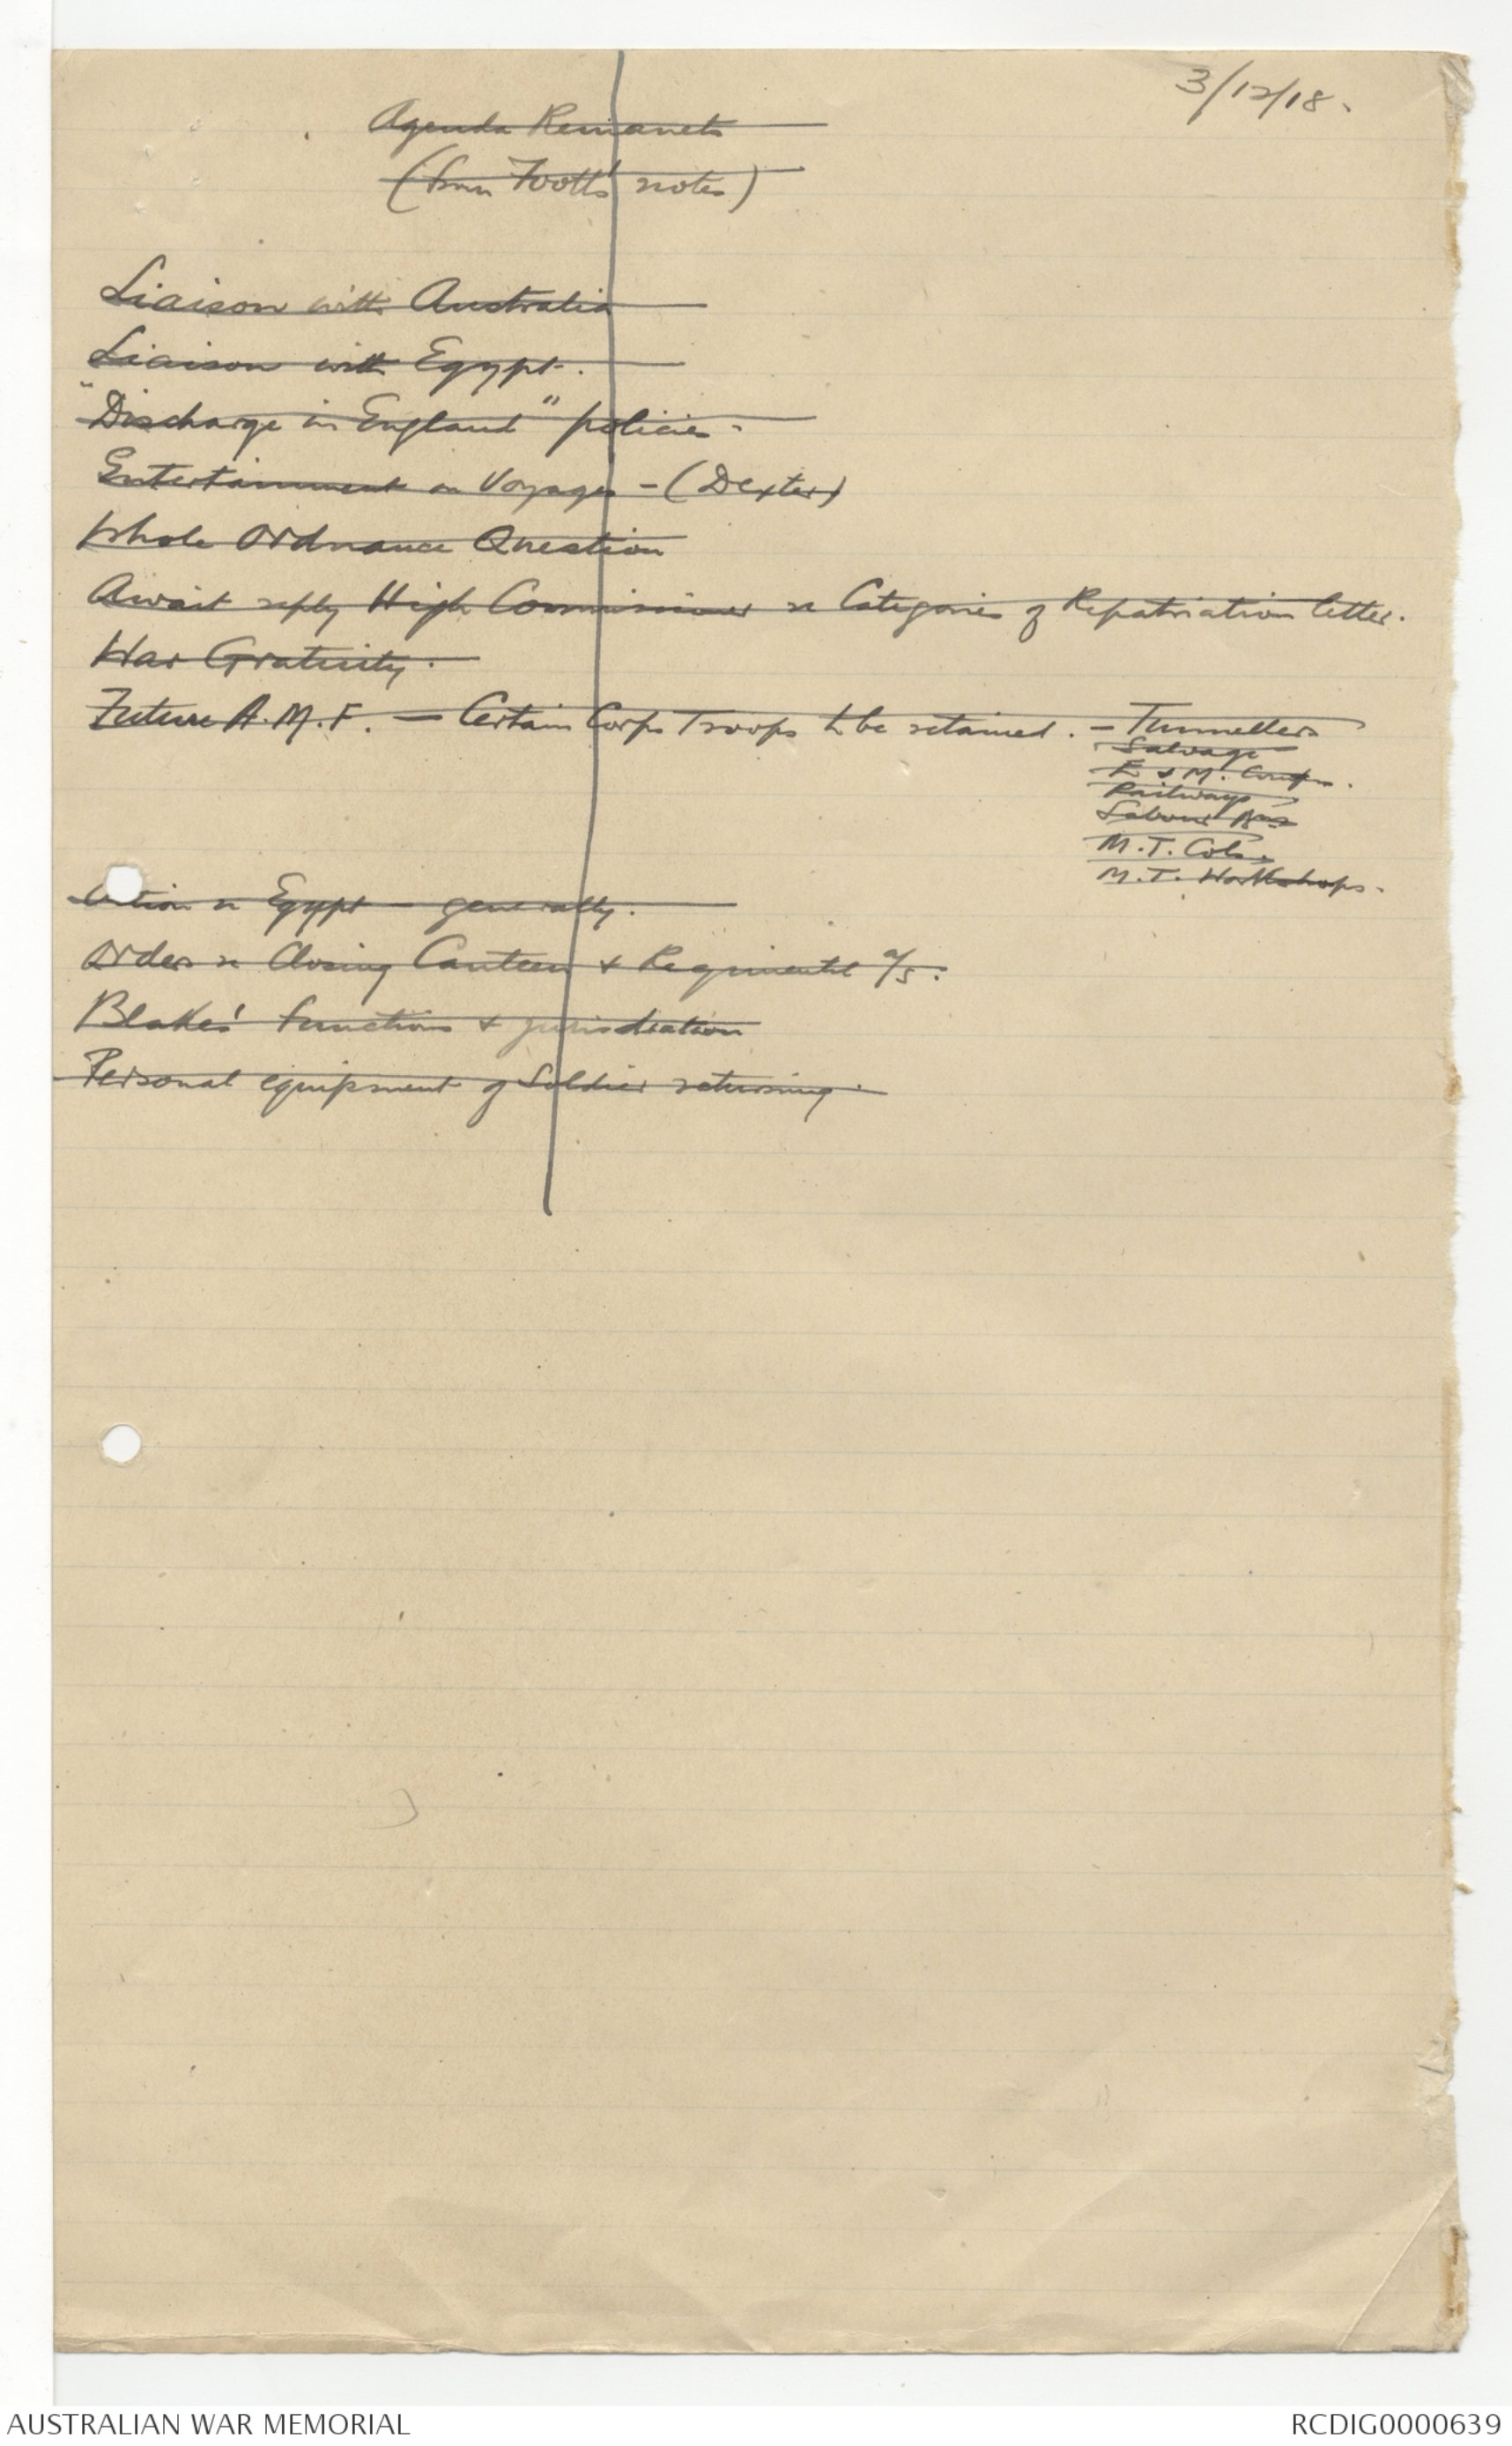 3/12/18.
Agenda Remanets
(from Foott's notes)
Liaison with Australia
Liaison with Egypt.
"Discharge in England" policies.
Entertainment on Voyages - (Dexter)
Whole Ordnance Question
Await reply High Commissioner re Categories of Repatriation letter.
War Gratuity.
Future A.M.F. — Certain Corps Troops to be retained. - Tunnellers
Salvage
E & M. Coy.
Railways
Labour Bns
M.T. Cols.
M.T. Workshops.
Action re Egypt - generally.
Orders re Closing Canteen & Regimental a/s.
Blake's functions & jurisdiction
Personal equipment of Soldier returning.
AUSTRALIAN WAR MEMORIAL
RCDIG0000639